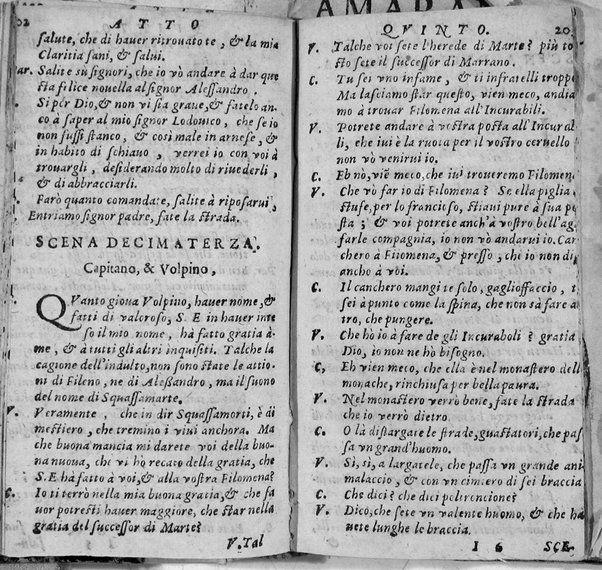 02 ATTO
salute, che di hauer ritrouato te, & la mia
Claritia sani, & salui.
ar. Salite sù signori, che io vò andare à dar que
sta felice nouella al signor Alessandro.
S. Sì per Dio, & non vi sia graue, & fatelo an-
co à saper al mio signor Lodouico, che se io
non fussi stanco, & così male in arnese, &
in habito di schiauo, verrei io con voi à
trouargli, desiderando molto di riuederli,
& di abbracciarli.
Farò quanto comandate, salite à riposarui,
Entriamo signor padre, fate la strada.
SCENA DECIMATERZA.
Capitano, & Volpino,
QVanto gioua Volpino, hauer nome, &
fatti di valoroso, S. E in hauer inte
so il mio nome, hà fatto gratia à
me, & à tutti gli altri inquisiti. Talche la
cagione dell'indulto, non sono state le attio-
ni di Fileno, ne di Alessandro, ma il suono
del nome di Squassamarte.
V. Veramente, che in dir Squassamorti, è di
mestiero, che tremino i viui anchora. Ma
che buona mancia mi darete voi della buo-
na nuoua, che vi hò recato della gratia, che
S. E hà fatto à voi, & alla vostra Filomena?
C. Io ti terrò nella mia buona gratia, & che fa
uor potresti hauer maggiore, che star nella
gratia del successor di Marte?
V. Tal
AMARA
QVINTO. 20
V. Talche voi sete l'herede di Marte? più to
sto sete il successor di Marrano.
C. Tu sei vno infame, & ti infratelli troppo
Ma lasciamo star questo, vien meco, andia
mo à trouar Filomena all'Incurabili.
V. Potrete andare à vostra posta all'Incurabi
li, che iui è la ruota per il vostro ceruello
non vò venirui io.
C. Eh nò, viẽ meco, che iui troueremo Filomen
V. Che vò far io di Filomena? Se ella piglia
stufe, per lo franciso, stiaui pure à sua po
sta; & voi potrete anch'à vostro bell'ag
farle compagnia, io non vò andarui io. Can
chero à Filomena, & presso, chi io non di
ancho à voi.
C. Il canchero mangi te solo, gaglioffaccio, t
sei à punto come la spina, che non sà fare à
tro, che pungere.
V. Che hò io à fare de gli Incuraboli? gratia
Dio, io non ne hò bisogno.
C. Eh vien meco, che ella è nel monastero dell
monache, rinchiusa per bella paura.
V. Nel monastero verrò bene, fate la strada
che io verrò dietro.
C. O là disgargate le strade, guastatori, che pas
sa vn grand'huomo.
V. Si, si, a largatele, che passa vn grande ani
malaccio, & con vn cimiero di sei braccia
C. Che dici? che dici poltroncione?
V. Dico, che sete vn valente huomo, & che ha
uete lunghe le braccia.
I 6 SCE-